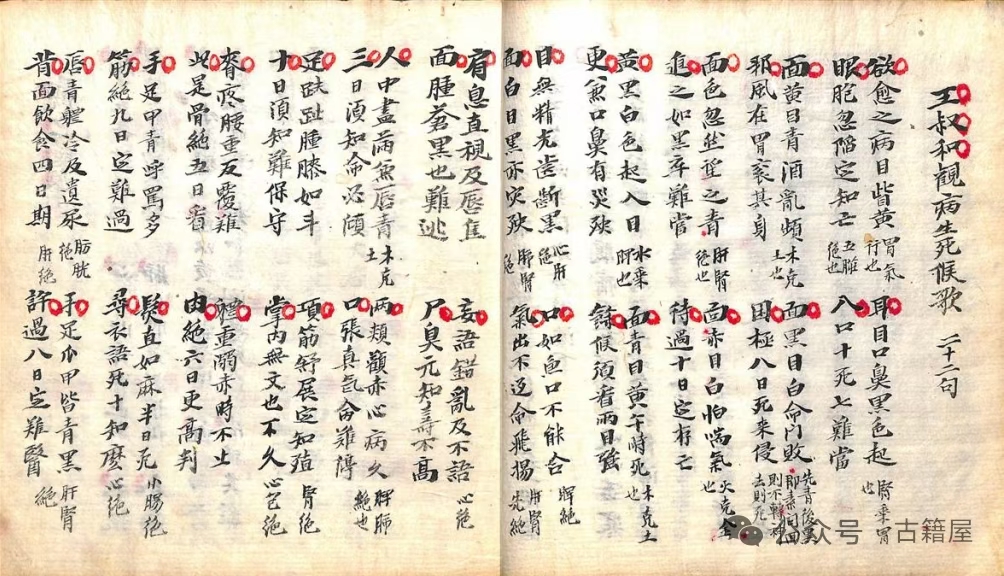 王叔和觀病生死候歌 二十二句
欲愈之病目眥黄 胃氣行也 耳目口鼻黑色起 腎乘胃也
眼胞忽陷定知亡 五臟絕也 入口十死七難當
面黄目青酒亂頻 木克土也 面黑目白命門敗 先青後黑即素問回則不轉神去則死
邪風在胃衮其身 困極八日死来侵
面色忽然望之青 肝腎絕也 面赤目白怕喘氣 火克金也
進之如黑卒難當 待過十日定存亡
黄黑白色起入目 水乘肝也 面青目黄午時死 木克土也
更兼口鼻有災殃 餘候須看兩日強
目無精光齒齗黑 心肝絕 口如魚口不能合 脾絕
面白目黑亦災殃 肝腎絕 氣出不返命飛揚 肝腎先絕
肩息直視及唇焦 妄語錯亂及不語 心絕
面腫蒼黑也難逃 尸臭元知壽不高
人中盡滿兼唇青 木克土 兩頰顴赤心病久 脾肺絕也
三日須知命必傾 口張真氣命難停
足趺趾腫膝如斗 項筋舒展定知殂 腎絕
十日須知難保守 掌内無文也不久 心包絕
脊疼腰重反覆難 體重溺赤時不止
此是骨絕五日看 肉絕六日更高判
手足甲青呼罵多 髮直如麻半日死 小腸絕
筋絕九日定難過 尋衣語死十知麽 心絕
唇青體冷及遺尿 膀胱絕 手足爪甲皆青黑 肝腎絕
背面飲食四日期 肝絕 許過八日定難醫
公众号·古籍屋